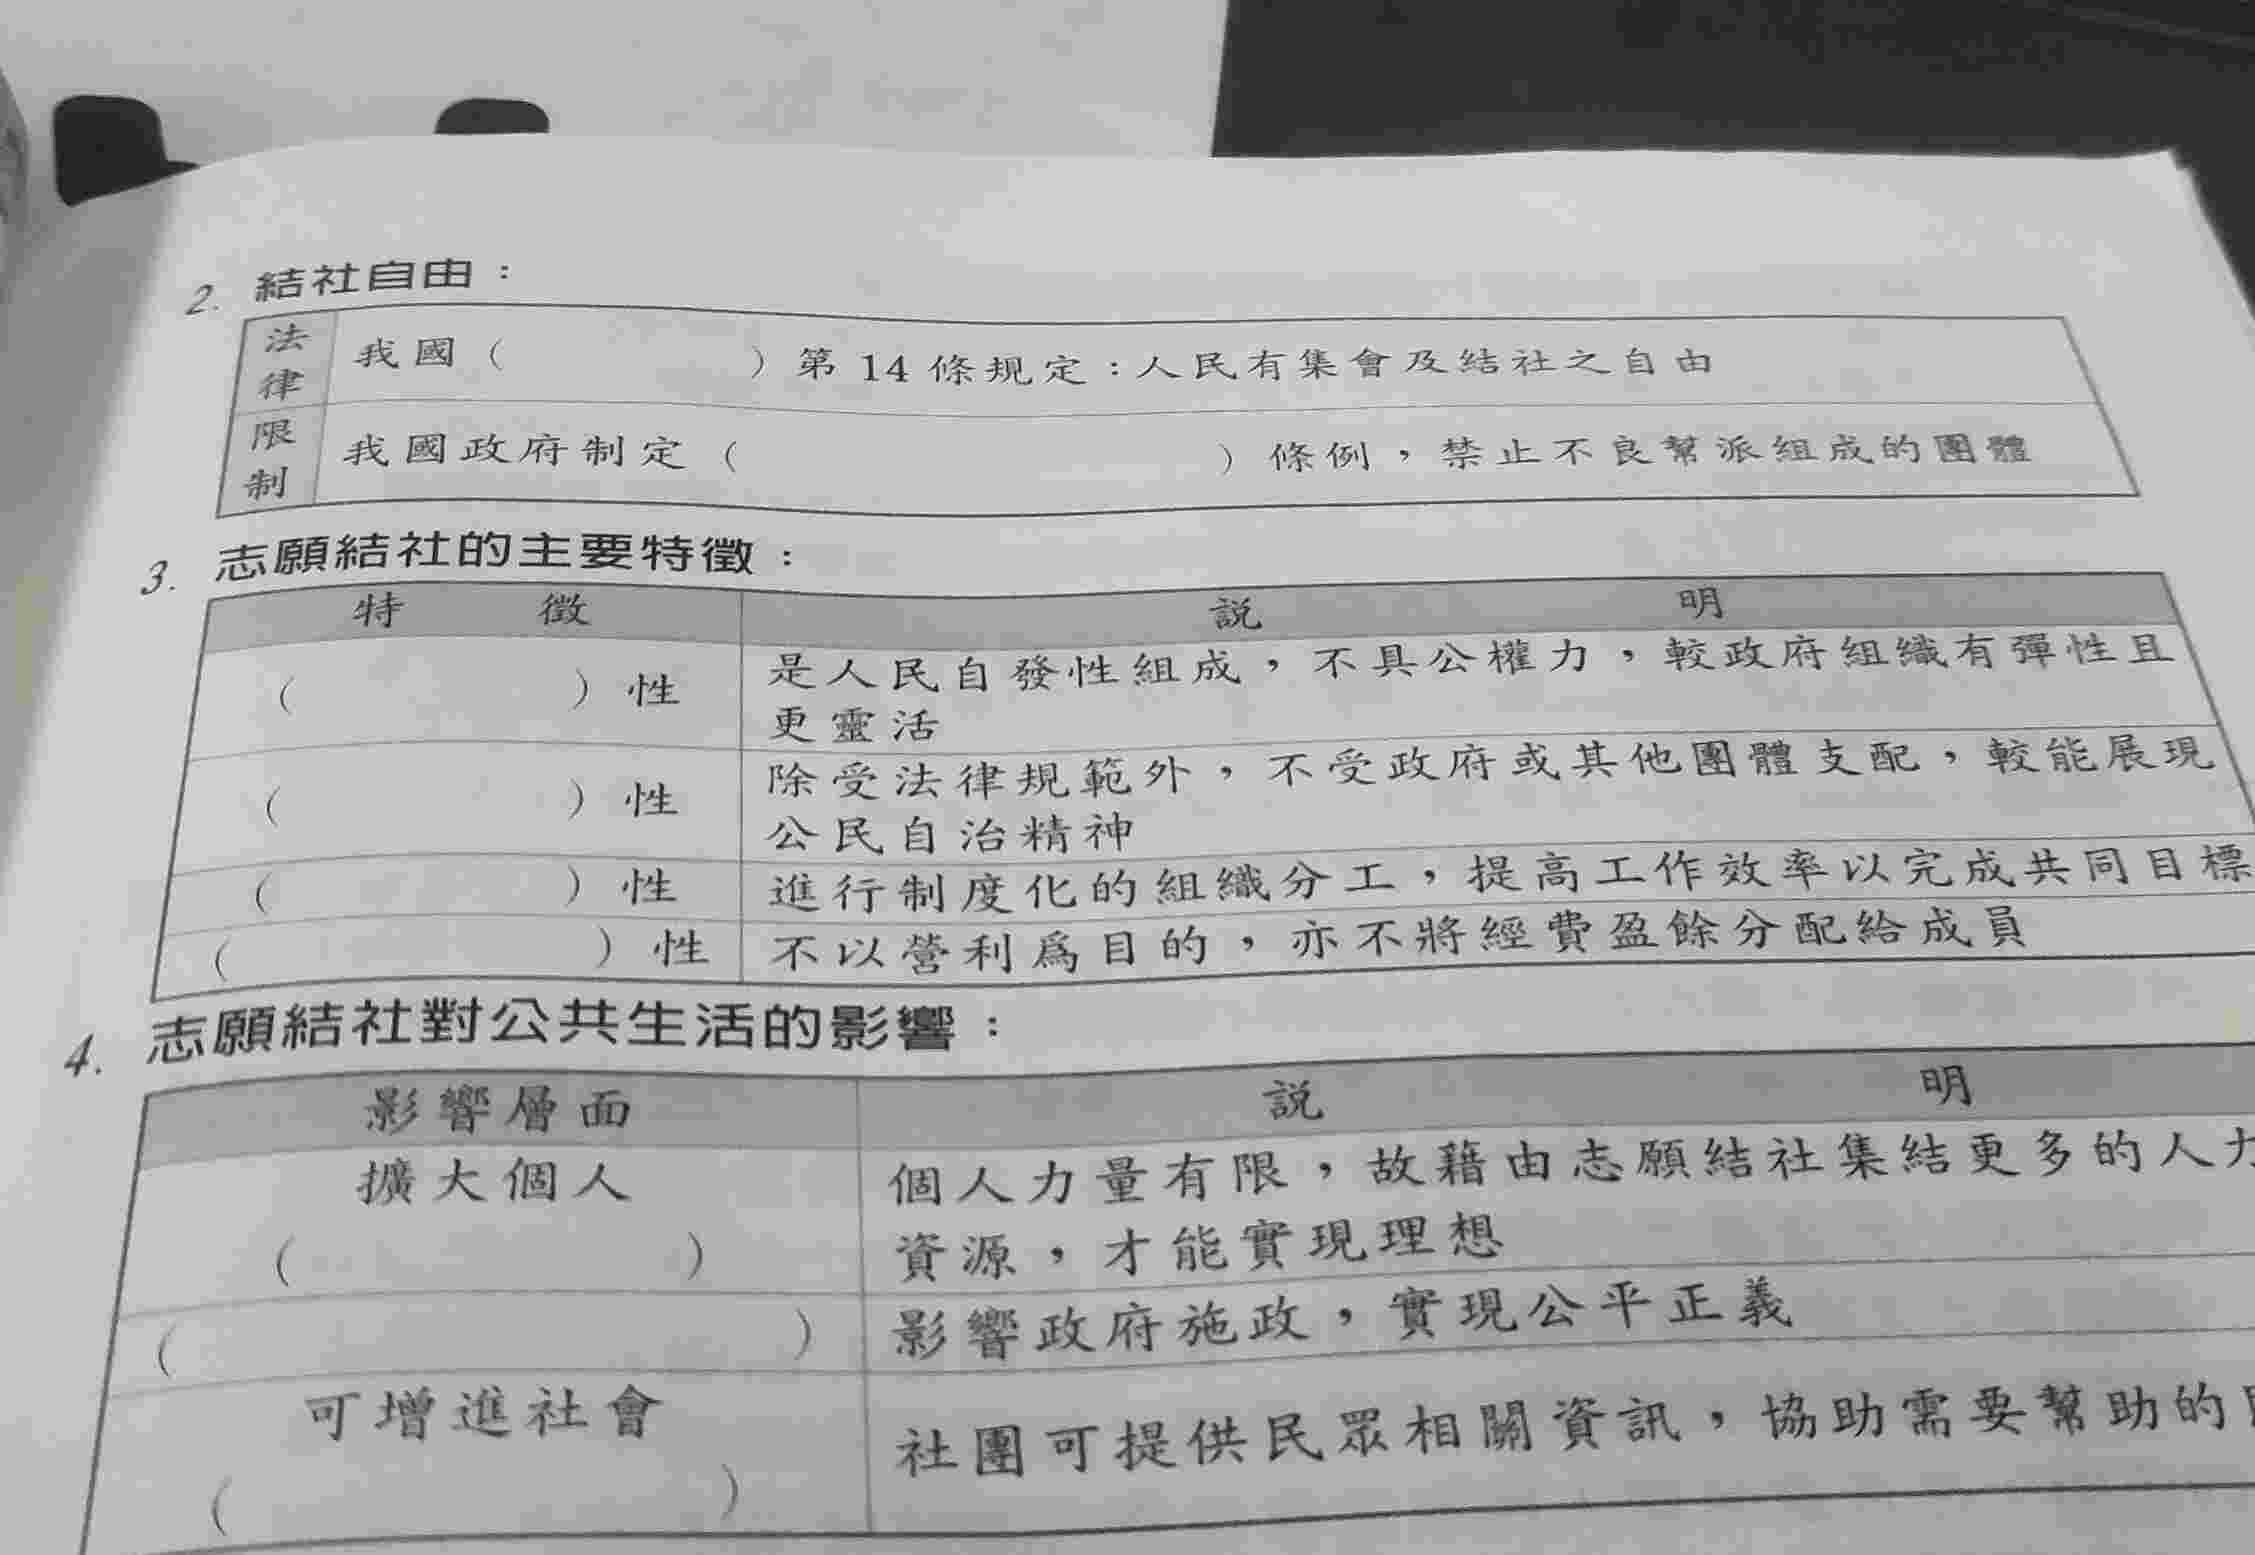 2. 結社自由：
法律限制
我國（　　　）第14條規定：人民有集會及結社之自由
我國政府制定（　　　）條例，禁止不良幫派組成的團體
3. 志願結社的主要特徵：
特徵　說明
（　　　）性　是人民自發性組成，不具公權力，較政府組織有彈性且
更靈活
（　　　）性　除受法律規範外，不受政府或其他團體支配，較能展現
公民自治精神
（　　　）性　進行制度化的組織分工，提高工作效率以完成共同目標
（　　　）性　不以營利為目的，亦不將經費盈餘分配給成員
4. 志願結社對公共生活的影響：
影響層面　說明
擴大個人　個人力量有限，故藉由志願結社集結更多的人力
（　　　）　資源，才能實現理想
（　　　）　影響政府施政，實現公平正義
可增進社會
（　　　）　社團可提供民眾相關資訊，協助需要幫助的